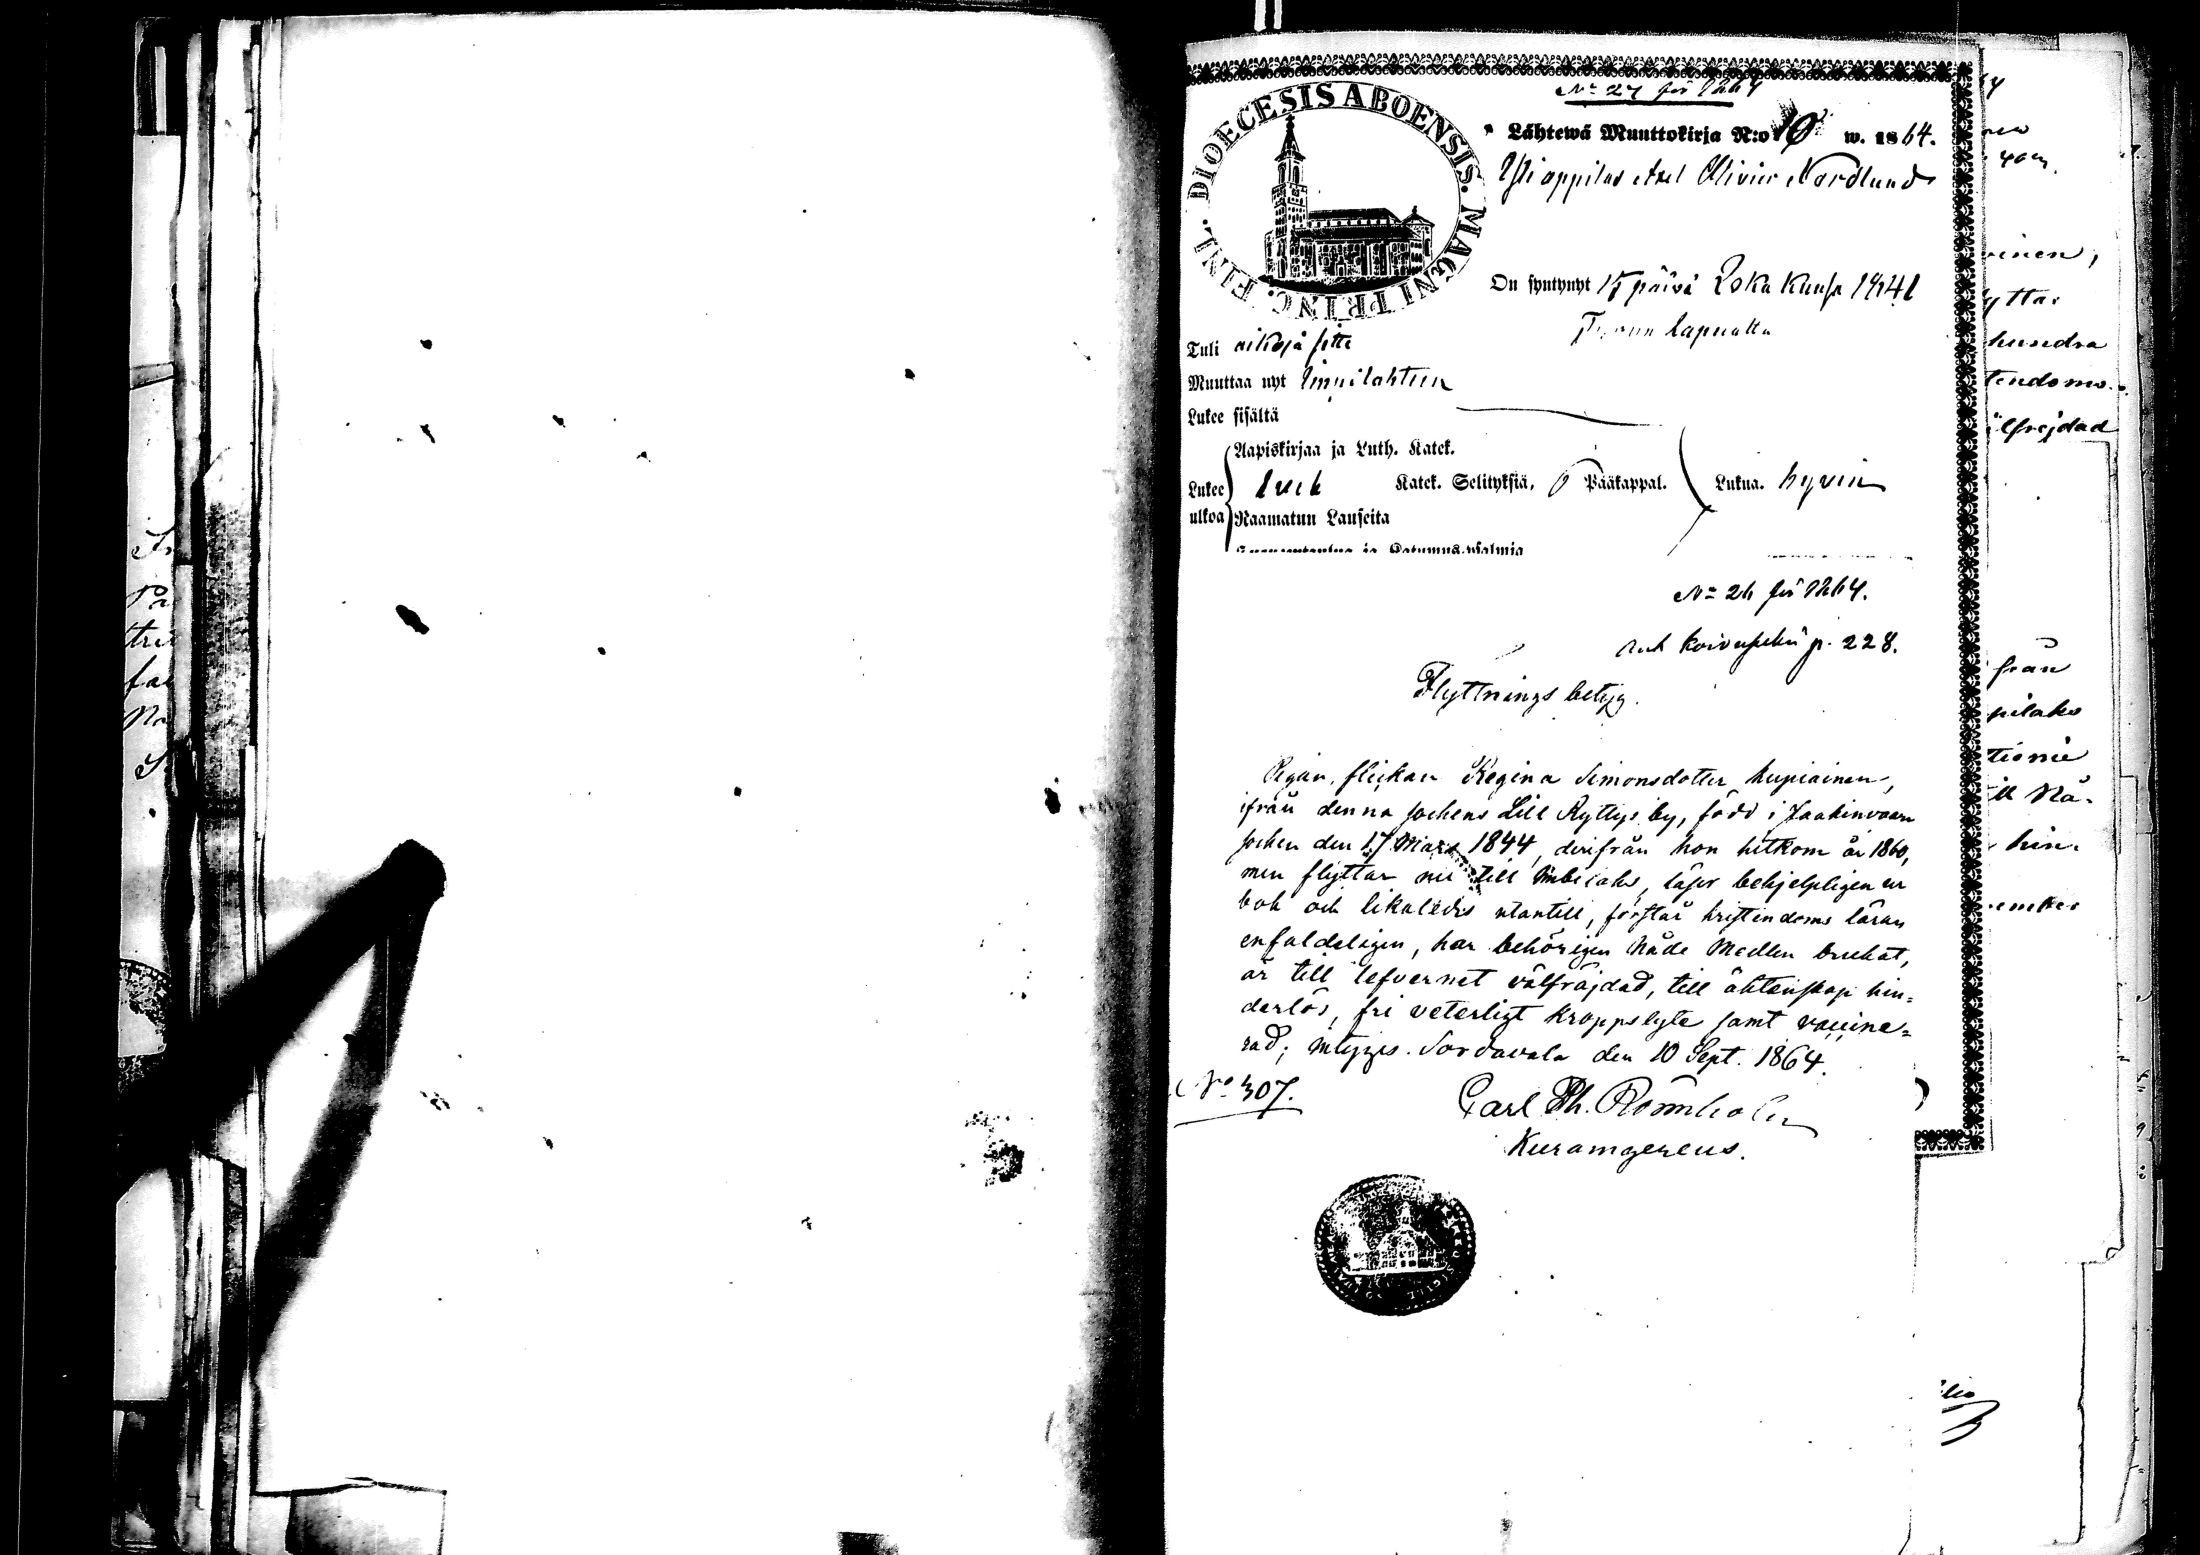 No 27 för 1864
DIOECESIS ABOENSIS. MAGNI PRINC. FINL.
Lähtewä Muuttokirja N:o 10 w. 1864.
Ylioppilas Axel Olivier Nordlund
On syntynyt 15 päivä Loka Kuusa 1841
Turun lapualta
Tuli aikoja sitte
Muuttaa nyt Impilahteen
Lukee sisältä
Aapiskirjaa ja Luth. Katek.
Lukee ulkoa
Katek. Selityksiä, Pääkappal.
Lukua. hyvin
Raamatun Lauseita
Huoneentaulua ja Katumus-psalmia
No 26 för 1864.
Koivuselkä p. 228.
Flyttnings betyg.
Pigan, flickan Regina Simonsdotter Kupiainen,
ifrån denna sockens Lill Ryttys by, född i Jaakimvaara
socken den 17 Mars 1844, derifrån hon hitkom år 1860,
men flyttar nu till Imbilaks, läser behjelpligen ur
bok och likaledes utantill, förstår kristendoms läran
enfaldeligen, har behörigen Nåde Medlen brukat,
är till lefvernet välfräjdad, till äktenskap hin-
derlös, fri veterligt kroppslyte samt vaccine-
rad; intygas. Sordavala den 10 Sept. 1864.
No 307.
Carl Th. Rönnholm
Kuramgerens.
vinen,
yttar
hundra
tendoms
lfrejdad
från
pilaks
ll Nå-
hin-